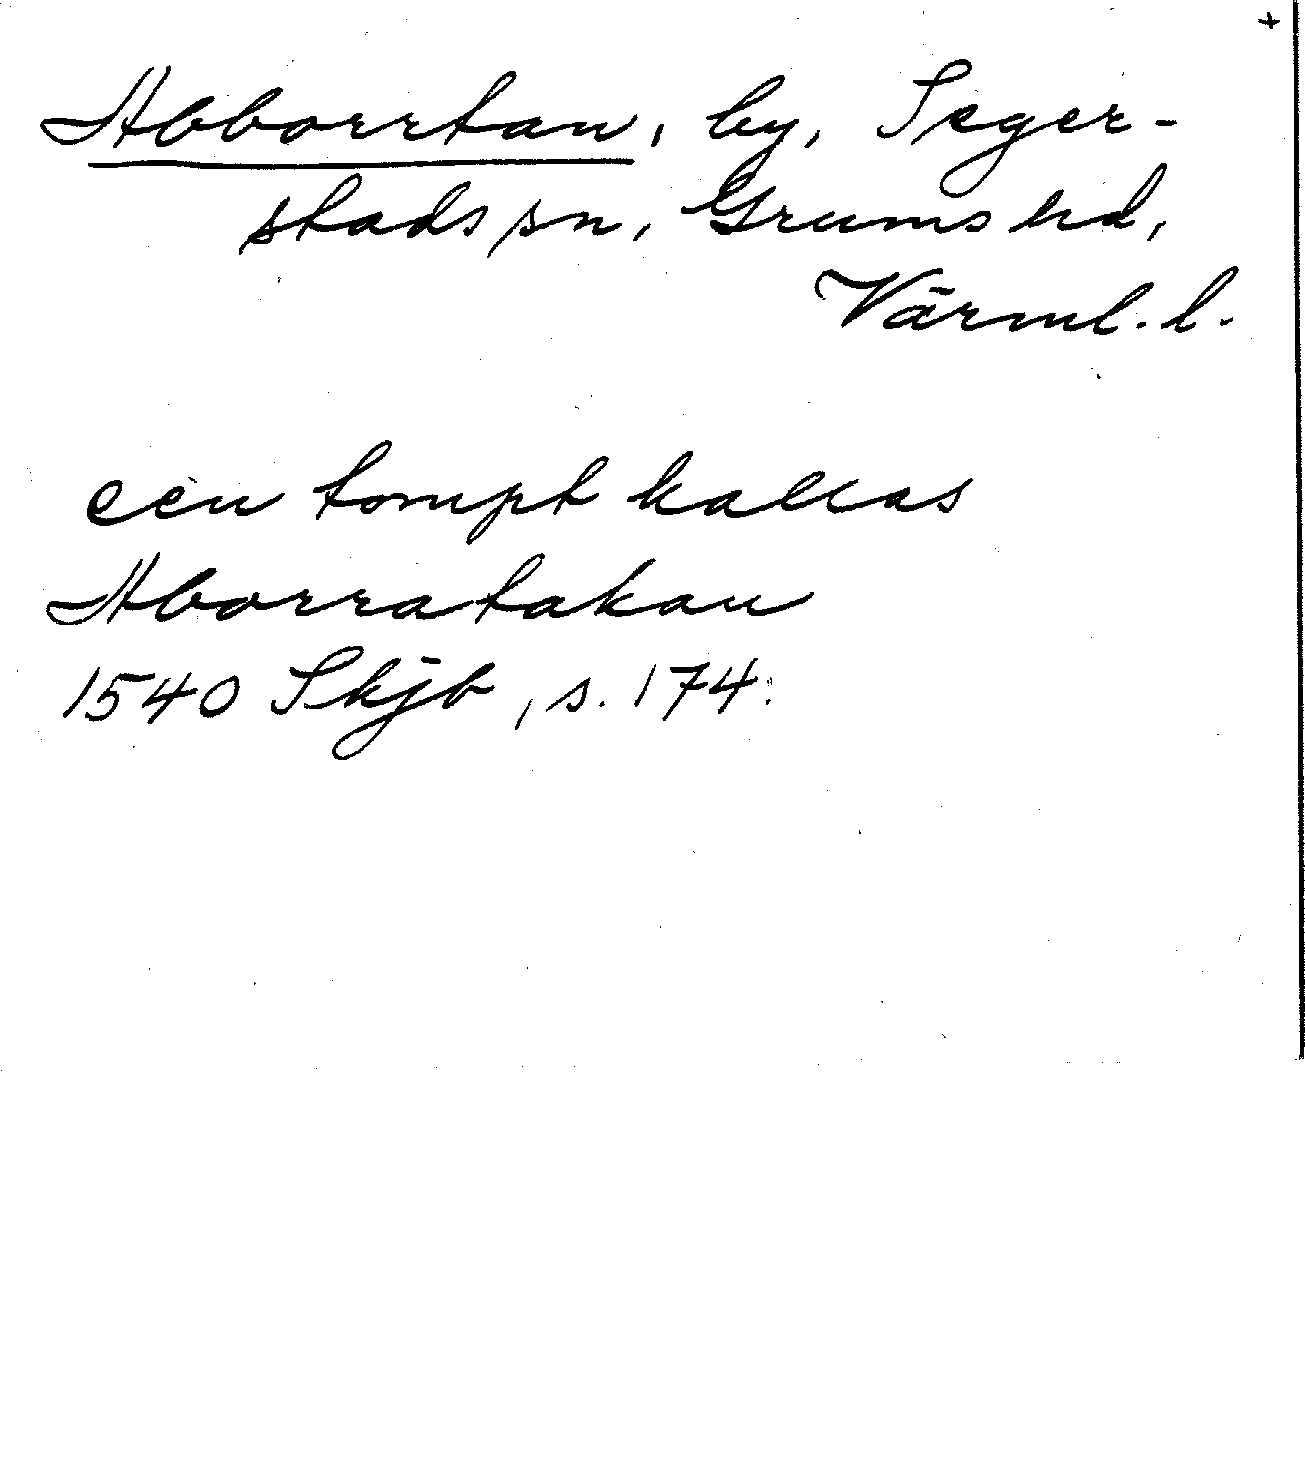 +
Abborrtan, by, Seger-
stads sn, Grums hd,
Värml. l.
een tompt kallas
Aborratakan
1540 Skjb, s. 174.